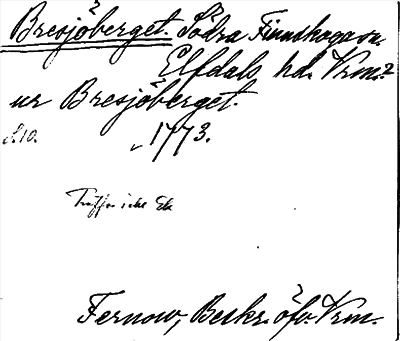 Bresjöberget. Södra Finnskoga sn.
Elfdals hd. Vrm.
ur Bresjöberget.
d. 10. 1773.
Träffar icke
Fernow, Beskr. öfv. Vrm.